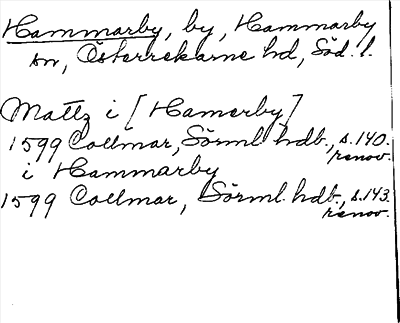 Hammarby, by, Hammarby
sn, Österrekarne hd, Söd. l.
Mattz i [Hamerby]
1599 Collmar, Sörml. hdb., s. 140.
renov.
i Hammarby
1599 Collmar, Sörml. hdb., s. 143.
renov.